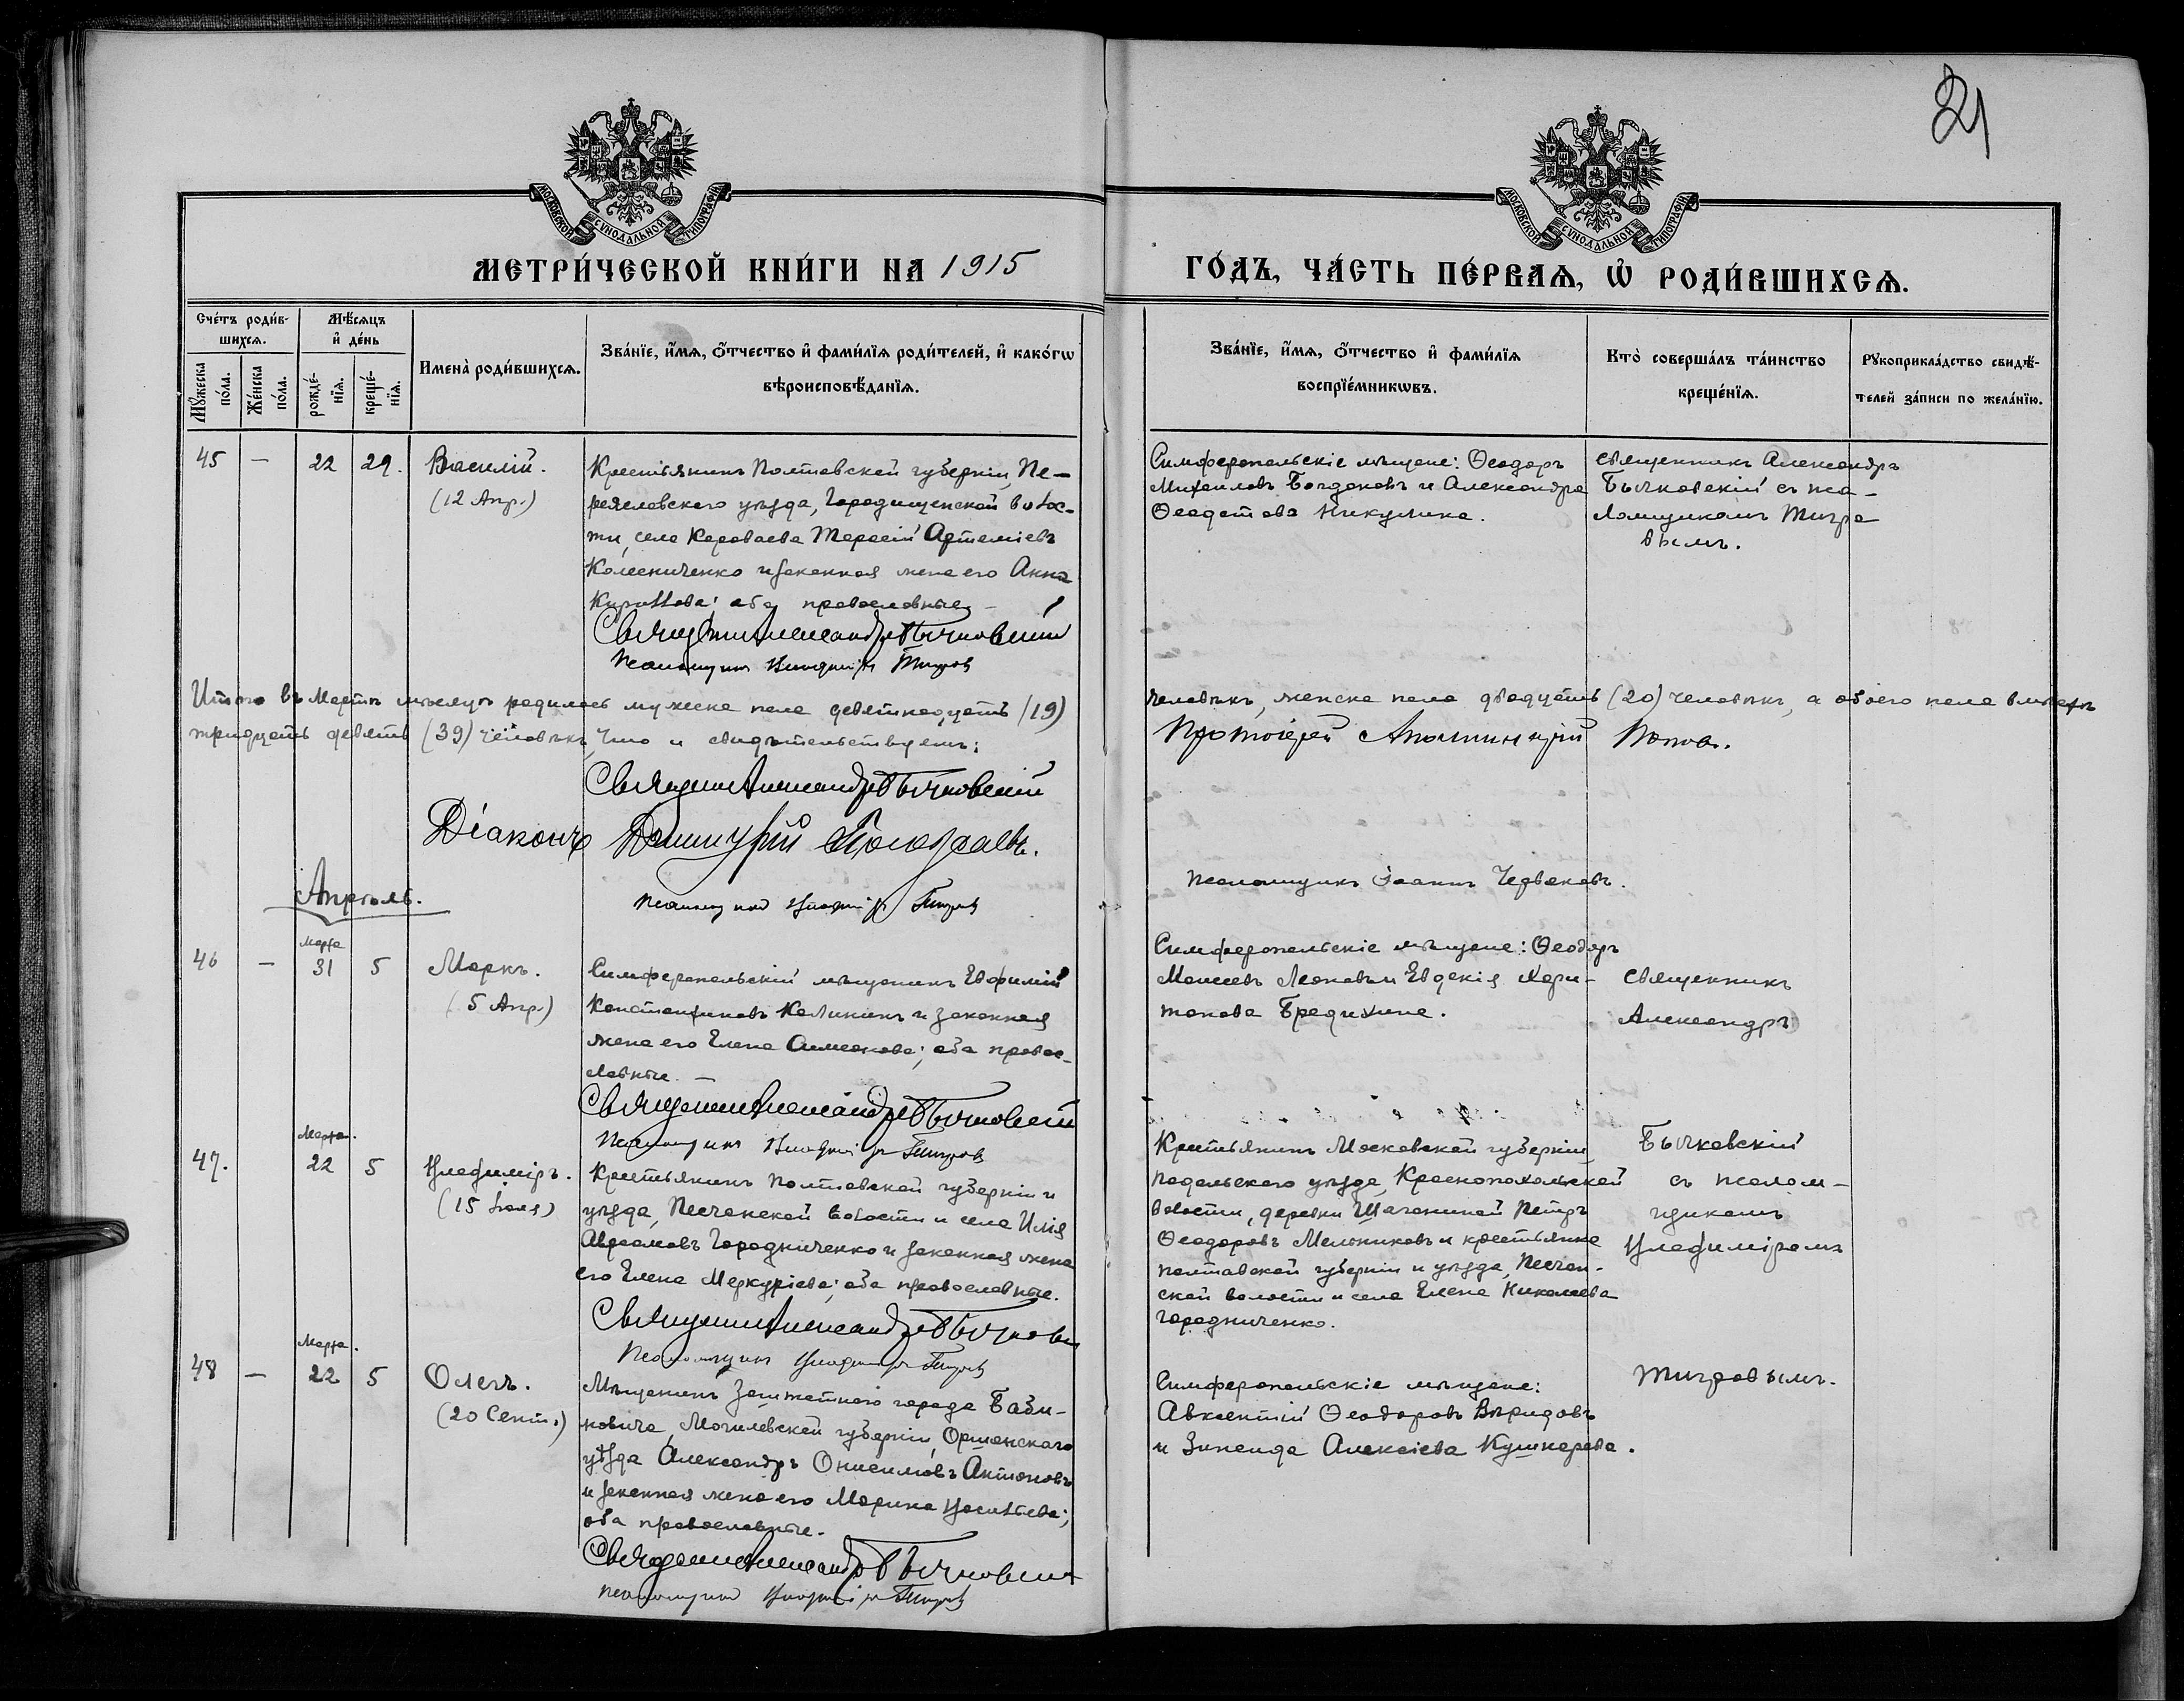 21
МОСКОВСКОЙ СѴНОДАЛЬНОЙ ТИПОГРАФІИ
МОСКОВСКОЙ СѴНОДАЛЬНОЙ ТИПОГРАФІИ
МЕТРИ́ЧЕСКОЙ КНИ́ГИ НА 1915
ГО́ДЪ, ЧА́СТЬ ПЕ́РВАѦ, Ѽ РОДИ́ВШИХСѦ.
Сче́тъ роди́в-
шихсѧ.
Мꙋ́жеска
по́ла.
Же́нска
по́ла.
Мѣ́сѧцъ
и҆ де́нь
рожде́-
нїѧ.
креще́-
нїѧ.
Имена̀ роди́вшихсѧ.
Зва́нїе, и҆́мѧ, ѻ҆́тчество и҆ фами́лїѧ роди́телей, и҆ како́гѡ
вѣроисповѣ́данїѧ.
Зва́нїе, и҆́мѧ, ѻ҆́тчество и҆ фами́лїѧ
воспрїе́мникѡвъ.
Кто̀ соверша́лъ та́инство
креще́нїѧ.
Рꙋкоприкла́дство свидѣ́-
телей за́писи по жела́нїю.
45 — 22 29. Василій.
(12 Апр.)
Крестьянинъ Полтавской губерніи, Пе-
реяславскаго уѣзда, Городищенской волос-
ти, села Короваева Тарасій Артеміевъ
Колесниченко и законная жена его Анна
Кириллова; оба православные –
Священникъ Александръ Бычковскій
Псаломщикъ Владиміръ Тигровъ
Симферопольскіе мѣщане: Ѳеодоръ
Михаиловъ Богдановъ и Александра
Ѳеодотова Никулина.
Священникъ Александръ
Бычковскій съ пса-
ломщикомъ Тигро
вымъ.
Итого въ Мартѣ мѣсяцѣ родилось мужеска пола девятнадцать (19)
человѣкъ, женска пола двадцать (20) человѣкъ, а обоего пола вмѣстѣ
тридцать девять (39) человѣкъ, что и свидѣтельствуемъ:
Протоіерей Попов.
Священникъ Александръ Бычковскій
Діаконъ
Псаломщикъ Владиміръ Тигровъ
Псаломщикъ Іоаннъ Червяковъ.
Апрѣль.
46 — Марта 31 5 Маркъ.
(5 Апр.)
Симферопольскій мѣщанинъ Евфимій
Константиновъ Калининъ и законная
жена его Елена Симеонова; оба правос-
лавные. —
Священникъ Александръ Бычковскій
Псаломщикъ Владиміръ Тигровъ
Симферопольскіе мѣщане: Ѳеодоръ
Моисеевъ Леоновъ и Евдокія Хари-
тонова Бредихина.
Священникъ
Александръ
47. Марта. 22 5 Владиміръ.
(15 Іюля)
Крестьянинъ Полтавской губерніи и
уѣзда, Песчанской волости и села Илія
Авраамовъ Городниченко и законная жена
его Елена Меркуріева; оба православные.
Священникъ Александръ Бычковскій
Псаломщикъ Владиміръ Тигровъ
Крестьянинъ Московской губерніи,
Подольскаго уѣзда, Краснопахольской
волости, деревни Шаганиной Петръ
Ѳеодоровъ Мельниковъ и крестьянка
Полтавской губерніи и уѣзда, Песчан-
ской волости и села Елена Николаева
Городниченко.
Бычковскій
съ псалом-
щикомъ
Владиміромъ
48 — Марта. 22 5 Олегъ.
(20 Сент.)
Мѣщанинъ Заштатнаго города Баби-
новича, Могилевской губерніи, Оршанскаго
уѣзда Александръ Онисимовъ Антоновъ
и законная жена его Марина Васильева;
оба православные.
Священникъ Александръ Бычковскій
Псаломщикъ Владиміръ Тигровъ
Симферопольскіе мѣщане:
Авксентій Ѳеодоровъ
и Зинаида Алексіева Кушнарева.
Тигровымъ.